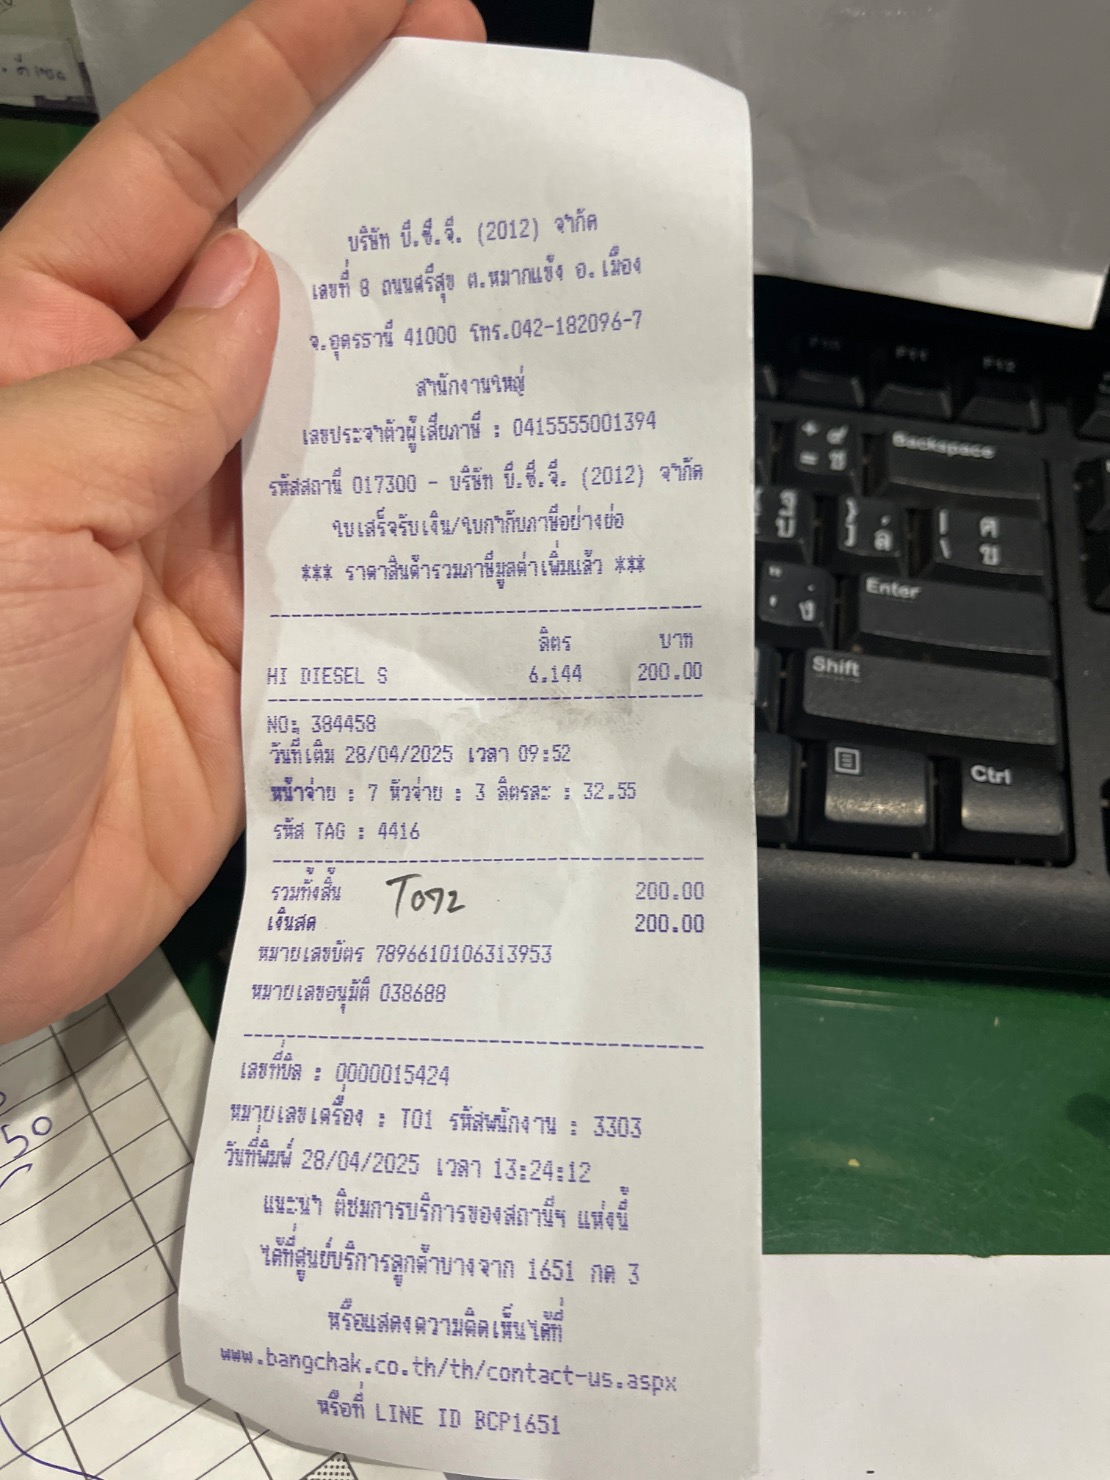 บริษัท บี.ซี.จี. (2012) จำกัด
เลขที่ 8 ถนนศรีสุข ต.หมากแข้ง อ.เมือง
จ.อุดรธานี 41000 โทร.042-182096-7
สำนักงานใหญ่
เลขประจำตัวผู้เสียภาษี : 0415555001394
รหัสสถานี 017300 - บริษัท บี.ซี.จี. (2012) จำกัด
ใบเสร็จรับเงิน/ใบกำกับภาษีอย่างย่อ
*** ราคาสินค้ารวมภาษีมูลค่าเพิ่มแล้ว ***
ลิตร บาท
HI DIESEL S 6.144 200.00
NO: 384458
วันที่เติม 28/04/2025 เวลา 09:52
หน้าจ่าย : 7 หัวจ่าย : 3 ลิตรละ : 32.55
รหัส TAG : 4416
รวมทั้งสิ้น 200.00
T072
เงินสด 200.00
หมายเลขบัตร 7896610106313953
หมายเลขอนุมัติ 038688
เลขที่บิล : 0000015424
หมายเลขเครื่อง : T01 รหัสพนักงาน : 3303
วันที่พิมพ์ 28/04/2025 เวลา 13:24:12
แนะนำ ติชมการบริการของสถานีฯ แห่งนี้
ได้ที่ศูนย์บริการลูกค้าบางจาก 1651 กด 3
หรือแสดงความคิดเห็นได้ที่
www.bangchak.co.th/th/contact-us.aspx
หรือที่ LINE ID BCP1651
F10 F11 F12
Backspace
Enter
Shift
Ctrl
50